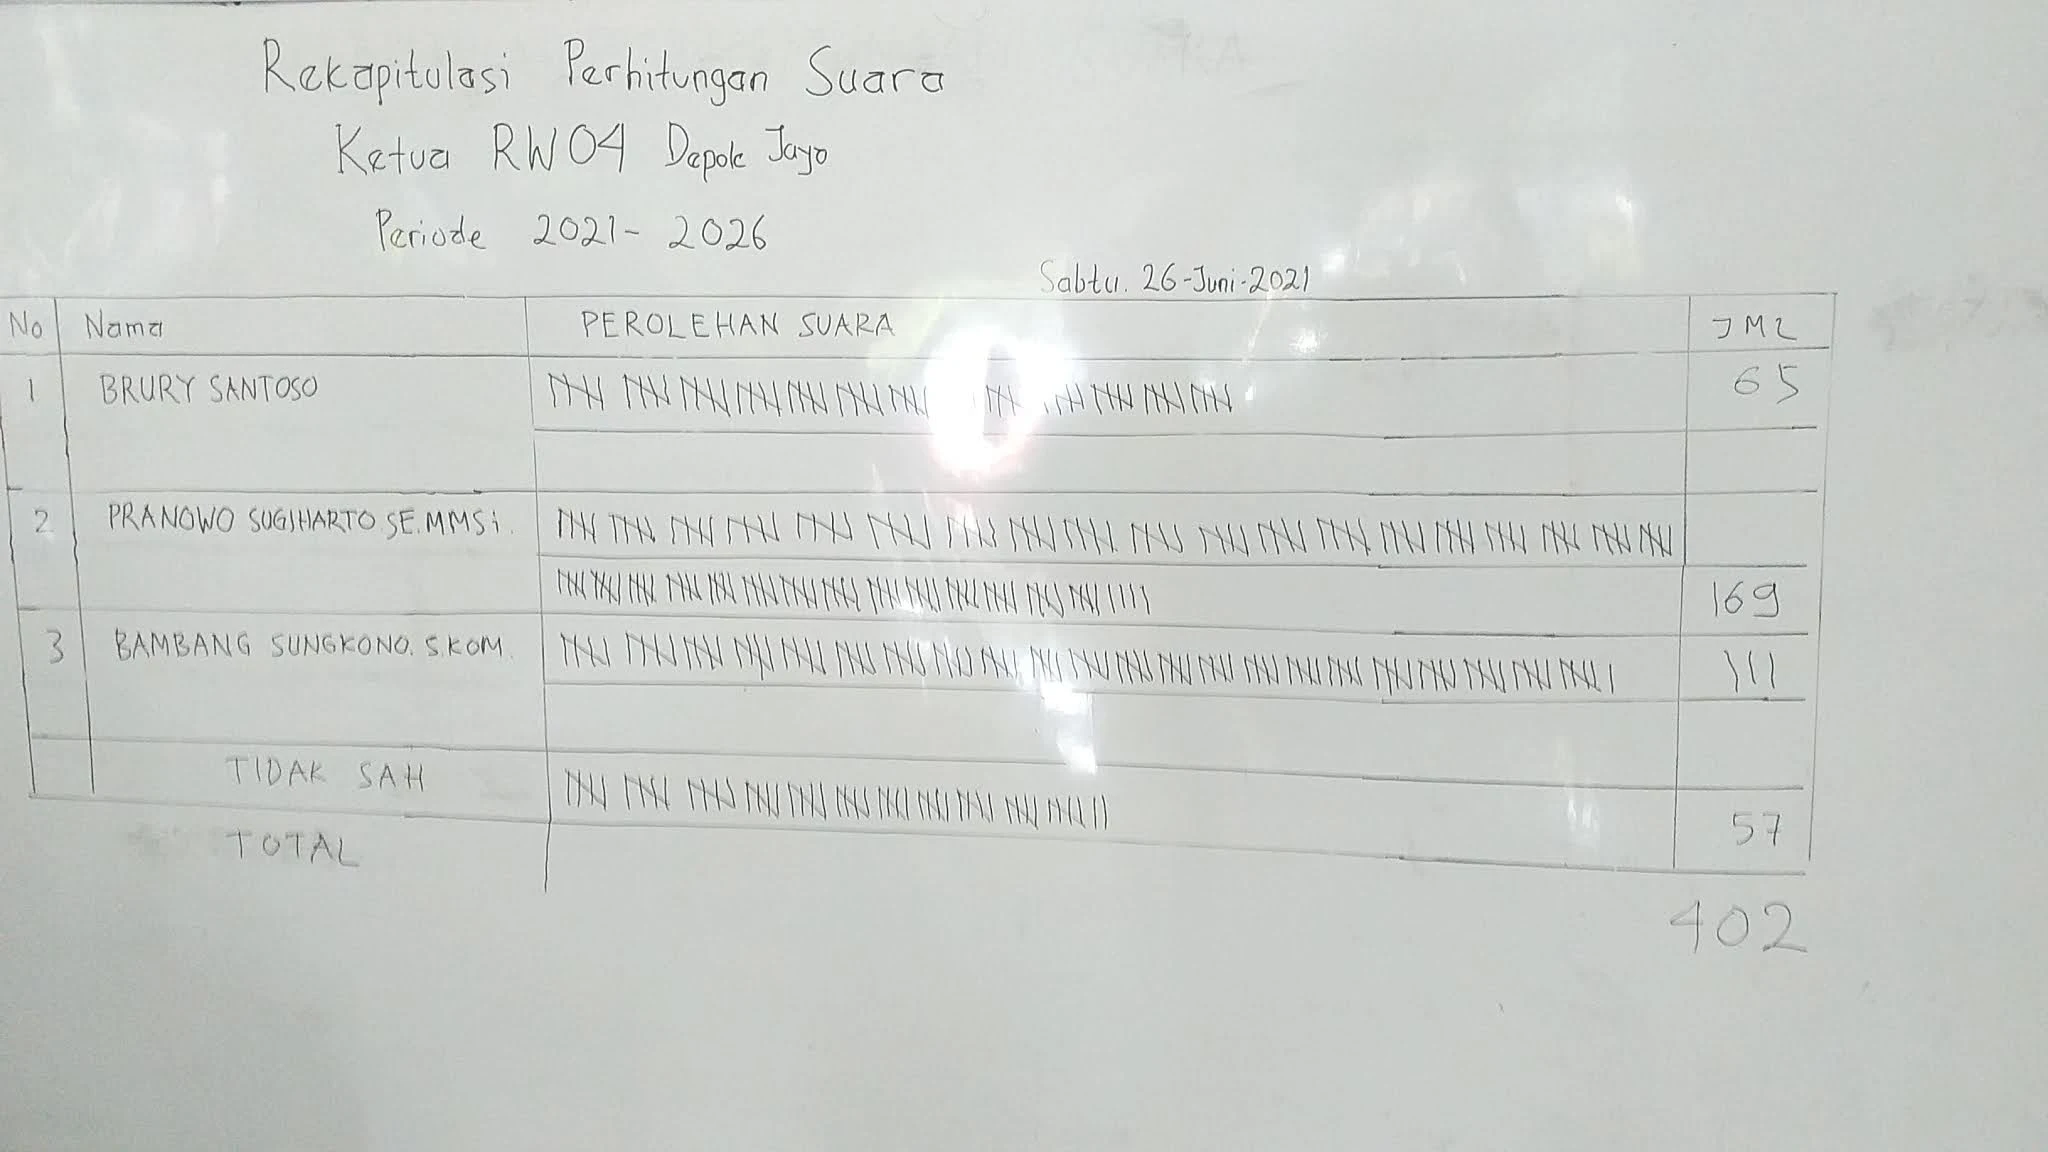 Rekapitulasi Perhitungan Suara
Ketua RW04 Depok Jaya
Periode 2021- 2026
Sabtu. 26-Juni-2021
No Nama PEROLEHAN SUARA JML
1 BRURY SANTOSO 65
2 PRANOWO SUGIHARTO, SE.MMSi.
169
3 BAMBANG SUNGKONO. S.KOM. 111
TIDAK SAH 57
TOTAL
402